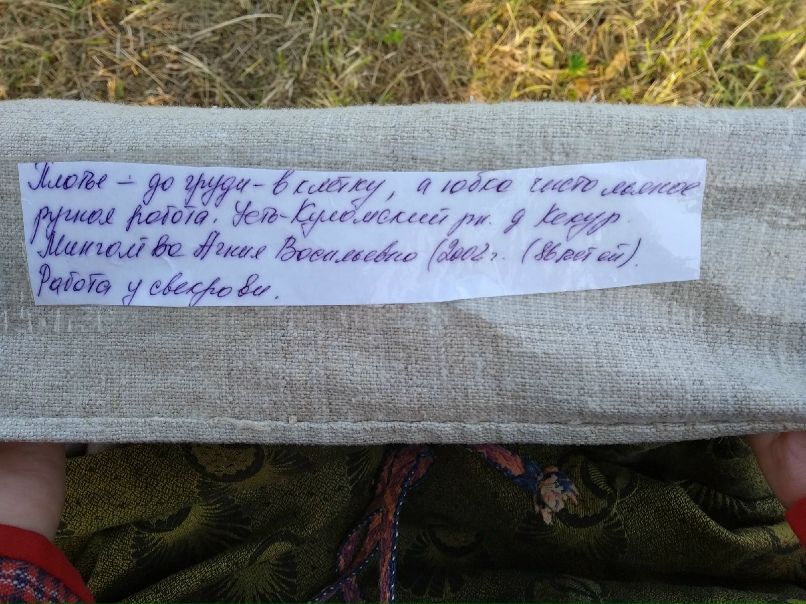 Платье – до груди – в клетку, а юбка чисто льняная
ручная работа. Усть-Куломский рн. д Кекур.
Агния Васильевна (2002г. (86лет ей).
Работа у свекрови.